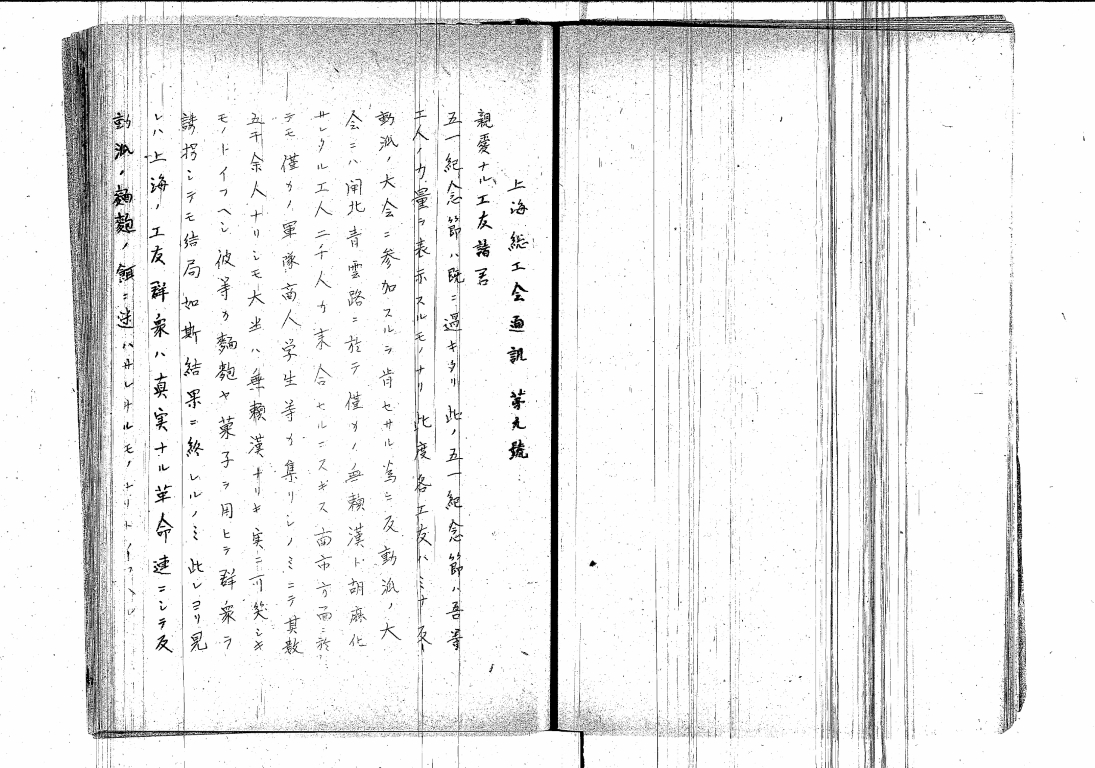 上海総工会通訊 第九號
親愛ナル工友諸君
五一紀念節ハ既ニ過キタリ此ノ五一紀念節ハ吾等
工人ノ力量ヲ表示スルモノナリ此度各工友ハミナ反
動派ノ大会ニ参加スルヲ肯セサル為ニ反動派ノ大
会ニハ閘北青雲路ニ於テ僅カノ無頼漢ト胡麻化
サレタル工人二千人カ来合セルニスギス南市方面ニ於
テモ僅カノ軍隊商人学生等カ集リシノミニテ其数
五千余人ナリシモ大半ハ無頼漢ナリキ実ニ可笑シキ
モノトイフヘシ彼等カ麵麭ヤ菓子ヲ用ヒテ群衆ヲ
誘拐シテモ結局如斯結果ニ終レルノミ此レヨリ見
レハ上海ノ工友群衆ハ真実ナル革命連ニシテ反
動派ノ麵麭ノ餌ニ迷ハサレサルモノナリトイフヘシ